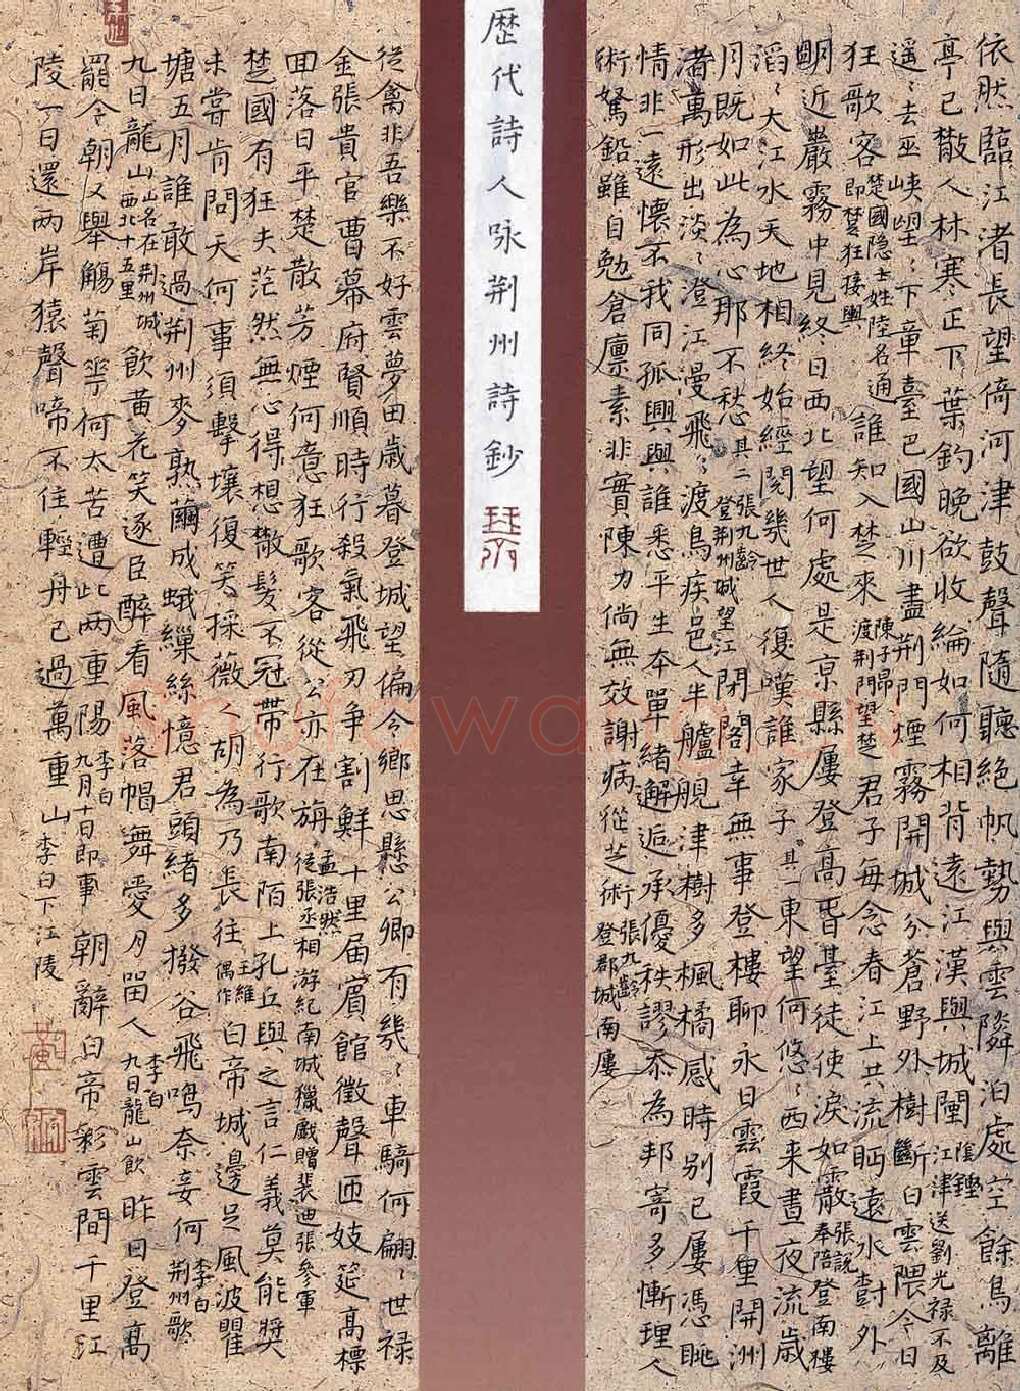 依然臨江渚長望倚河津鼓聲隨聽絕帆勢與雲隣泊處空餘鳥離
亭已散人林寒正下葉釣晚欲收綸如何相背遠江漢與城闉陰鏗江津送劉光祿不及
遥〻去巫峽望〻下章臺巴國山川盡荆門煙霧開城分蒼野外樹斷白雲隈今日
狂歌客楚國隐士姓陸名通即楚狂接輿誰知入楚來陳子昂渡荆門望楚君子每念春江上共流眄遠水對外
朙近巖霧中見終日西北望何處是京縣屢登高㫺臺徒使淚如霰張說奉陪登南樓
滔〻大江水天地相終始經閱幾世人復嘆誰家子其一東望何悠〻西来晝夜流歲
月既如此為心那不愁其二張九齡登荆州城望江閉閣幸無事登樓聊永日雲霞千里開洲
渚萬形出淡〻澄江漫飛〻渡鳥疾邑人半艫舰津樹多楓橘感時别已屢馮眺
情非一遠懷不我同孤興與誰悉平生本單緒邂逅承優秩謬忝為邦寄多慚理人
術駑鉛雖自勉倉廪素非實陳力倘無效謝病從芝术張九齡登郡城南廔
歷代詩人咏荆州詩鈔
從禽非吾樂不好雲夢田歲暮登城望偏令鄉思懸公卿有幾〻車騎何翩〻世禄
金張貴官曹幕府賢順時行殺氣飛刃争割鮮十里届賓館徵聲匝妓筵高標
回落日平楚散芳煙何意狂歌客從公亦在旃孟浩然從張丞相游紀南城獵戲贈裴迪張參軍
楚國有狂夫茫然無心得想散髮不冠帶行歌南陌上孔丘與之言仁義莫能奬
未嘗肯問天何事須擊壤復笑採薇人胡為乃長往王維偶作白帝城邊足風波瞿
塘五月誰敢過荆州麥熟繭成蛾繅絲憶君頭緒多撥谷飛鳴奈妾何李白荆州歌
九日龍山山名在荆州城西北十五里飲黄花笑逐臣醉看風落帽舞愛月畱人李白九日龍山飲昨日登高
罷今朝又舉觴菊華何太苦遭此两重陽李白九月十日即事朝辭白帝彩雲間千里江
陵一日還两岸猿聲啼不住輕舟已過萬重山李白下江陵